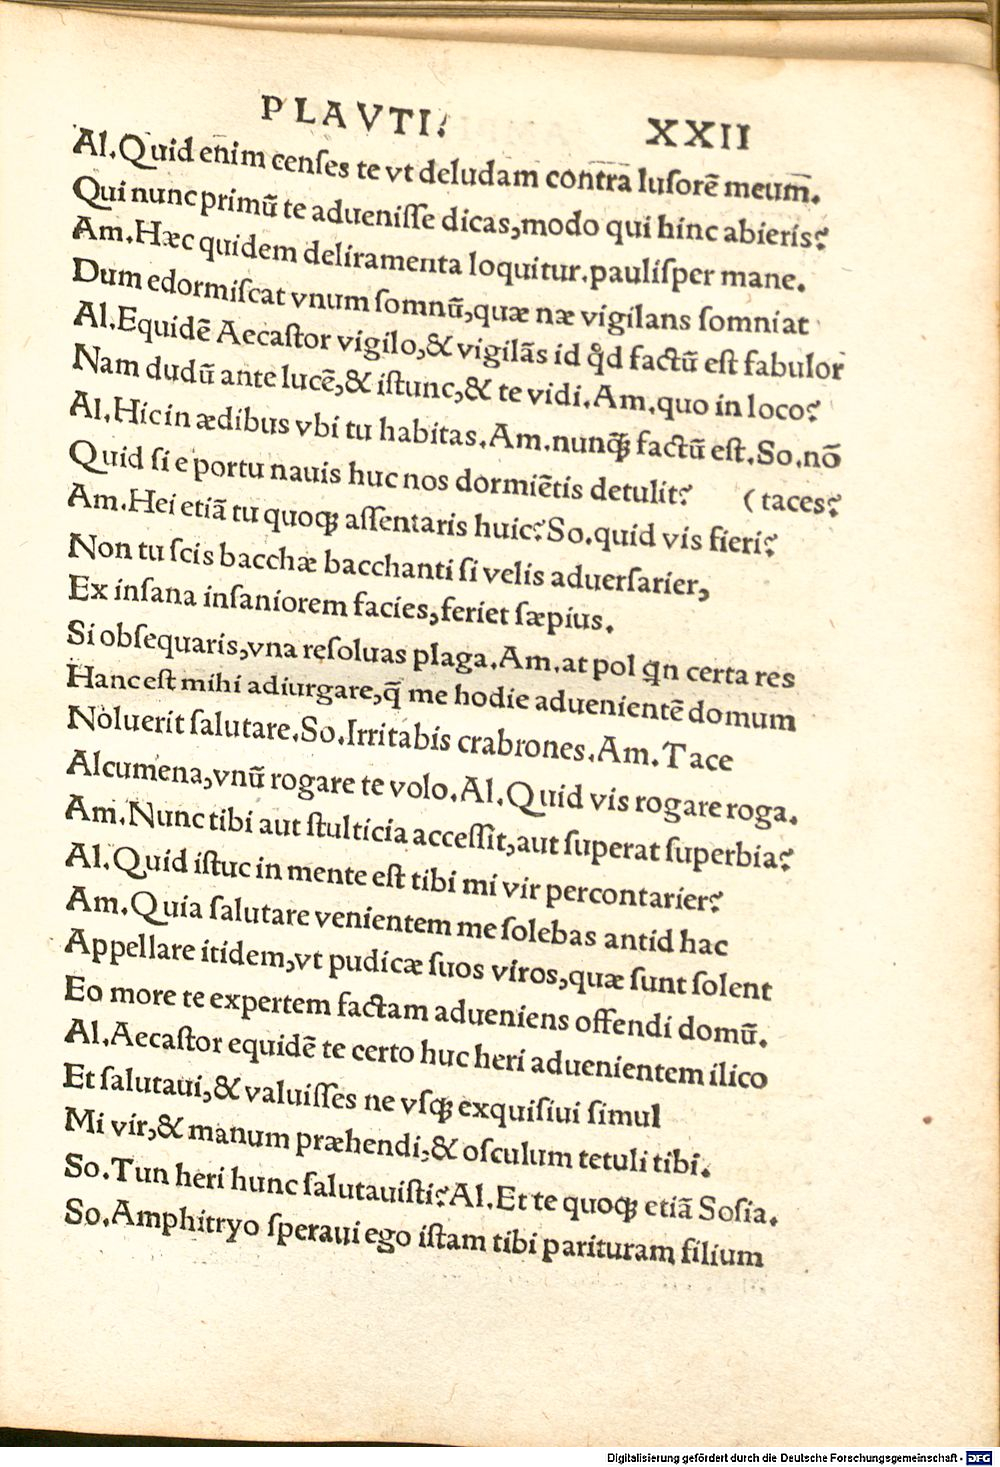 PLAVTI. XXII
Al.Quid enim censes te vt deludam contra lusorē meum̄.
Qui nunc primū te aduenisse dicas,modo qui hinc abieris?
Am.Hæc quidem deliramenta loquitur.paulisper mane.
Dum edormiscat vnum somnū,quæ næ vigilans somniat
Al.Equidē Aecastor vigilo,& vigilās id qd̉ factū est fabulor
Nam dudū ante lucē,& istunc,& te vidi.Am.quo in loco?
Al.Hic in ædibus vbi tu habitas.Am.nunq̄ꝫ factū est.So.nō
Quid si e portu nauis huc nos dormiētis detulit? (taces?
Am.Hei etiā tu quoqꝫ assentaris huic?So.quid vis fieri?
Non tu scis bacchæ bacchanti si velis aduersarier,
Ex insana insaniorem facies,feriet sæpius.
Si obsequaris,vna resoluas plaga.Am.at pol qn̄ certa res
Hanc est mihi adiurgare,q̄ me hodie aduenientē domum
Noluerit salutare.So.Irritabis crabrones.Am.Tace
Alcumena,vnū rogare te volo.Al.Quid vis rogare roga.
Am.Nunc tibi aut stulticia accessit,aut superat superbia?
Al.Quid istuc in mente est tibi mi vir percontarier?
Am.Quia salutare venientem me solebas antid hac
Appellare itidem,vt pudicæ suos viros,quæ sunt solent
Eo more te expertem factam adueniens offendi domū.
Al.Aecastor equidē te certo huc heri aduenientem ilico
Et salutaui,& valuisses ne vsqꝫ exquisiui simul
Mi vir,& manum præhendi,& osculum tetuli tibi.
So.Tun heri hunc salutauisti?Al.Et te quoqꝫ etiā Sosia.
So.Amphitryo speraui ego istam tibi parituram filium
Digitalisierung gefördert durch die Deutsche Forschungsgemeinschaft - DFG